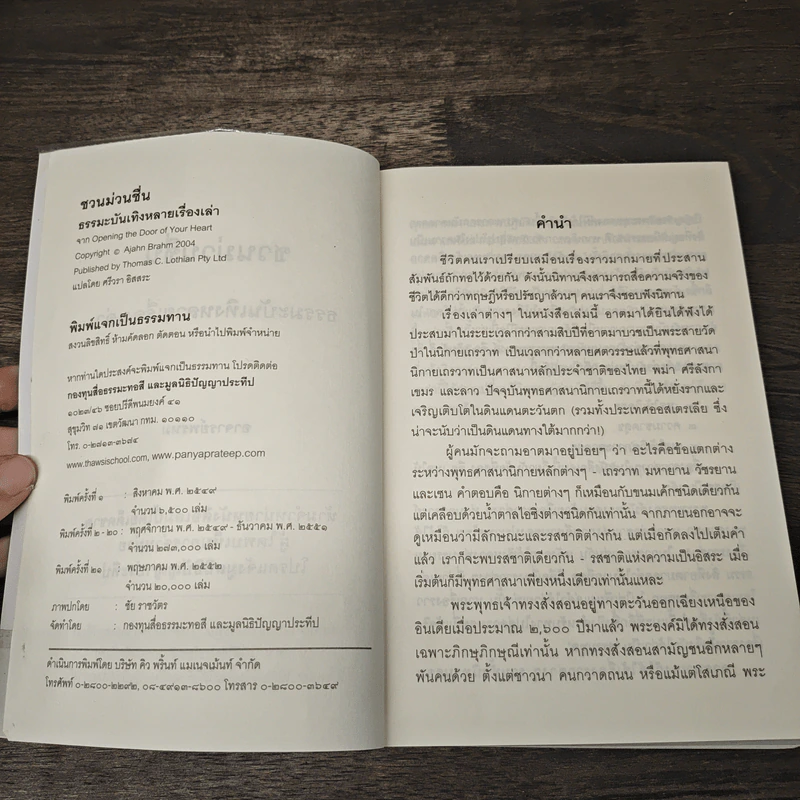 ชวนม่วนชื่น
ธรรมะบันเทิงหลายเรื่องเล่า
จาก Opening the Door of Your Heart
Copyright © Ajahn Brahm 2004
Published by Thomas C. Lothian Pty Ltd
แปลโดย ศรีวรา อิสสระ
พิมพ์แจกเป็นธรรมทาน
สงวนลิขสิทธิ์ ห้ามคัดลอก ตัดตอน หรือนำไปพิมพ์จำหน่าย
หากท่านใดประสงค์จะพิมพ์แจกเป็นธรรมทาน โปรดติดต่อ
กองทุนสื่อธรรมะทอสี และมูลนิธิปัญญาประทีป
๑๐๒๓/๔๖ ซอยปรีดีพนมยงค์ ๔๑
สุขุมวิท ๗๑ เขตวัฒนา กทม. ๑๐๑๑๐
โทร. ๐-๒๗๑๓-๓๖๗๔
www.thawsischool.com, www.panyaprateep.com
พิมพ์ครั้งที่ ๑ : สิงหาคม พ.ศ. ๒๕๔๙
จำนวน ๖,๕๐๐ เล่ม
พิมพ์ครั้งที่ ๒ - ๒๐ : พฤศจิกายน พ.ศ. ๒๕๔๙ - ธันวาคม พ.ศ. ๒๕๕๑
จำนวน ๒๗๓,๐๐๐ เล่ม
พิมพ์ครั้งที่ ๒๑ : พฤษภาคม พ.ศ. ๒๕๕๒
จำนวน ๒๐,๐๐๐ เล่ม
ภาพปกโดย : ชัย ราชวัตร
จัดทำโดย : กองทุนสื่อธรรมะทอสี และมูลนิธิปัญญาประทีป
ดำเนินการพิมพ์โดย บริษัท คิว พริ้นท์ แมเนจเม้นท์ จำกัด
โทรศัพท์ ๐-๒๘๐๐-๒๒๙๒, ๐๘-๔๙๑๓-๘๖๐๐ โทรสาร ๐-๒๘๐๐-๓๖๔๙
คำนำ
ชีวิตคนเราเปรียบเสมือนเรื่องราวมากมายที่ประสาน
สัมพันธ์ถักทอไว้ด้วยกัน ดังนั้นนิทานจึงสามารถสื่อความจริงของ
ชีวิตได้ดีกว่าทฤษฎีหรือปรัชญาล้วนๆ คนเราจึงชอบฟังนิทาน
เรื่องเล่าต่างๆ ในหนังสือเล่มนี้ อาตมาได้ยินได้ฟังได้
ประสบมาในระยะเวลากว่าสามสิบปีที่อาตมาบวชเป็นพระสายวัด
ป่าในนิกายเถรวาท เป็นเวลากว่าหลายศตวรรษแล้วที่พุทธศาสนา
นิกายเถรวาทเป็นศาสนาหลักประจำชาติของไทย พม่า ศรีลังกา
เขมร และลาว ปัจจุบันพุทธศาสนานิกายเถรวาทนี้ได้หยั่งรากและ
เจริญเติบโตในดินแดนตะวันตก (รวมทั้งประเทศออสเตรเลีย ซึ่ง
น่าจะนับว่าเป็นดินแดนทางใต้มากกว่า!)
ผู้คนมักจะถามอาตมาอยู่บ่อยๆ ว่า อะไรคือข้อแตกต่าง
ระหว่างพุทธศาสนานิกายหลักต่างๆ - เถรวาท มหายาน วัชรยาน
และเซน คำตอบคือ นิกายต่างๆ ก็เหมือนกับขนมเค้กชนิดเดียวกัน
แต่เคลือบด้วยน้ำตาลไอซิ่งต่างชนิดกันเท่านั้น จากภายนอกอาจจะ
ดูเหมือนว่ามีลักษณะและรสชาติต่างกัน แต่เมื่อกัดลงไปเต็มคำ
แล้ว เราก็จะพบรสชาติเดียวกัน - รสชาติแห่งความเป็นอิสระ เมื่อ
เริ่มต้นก็มีพุทธศาสนาเพียงหนึ่งเดียวเท่านั้นแหละ
พระพุทธเจ้าทรงสั่งสอนอยู่ทางตะวันออกเฉียงเหนือของ
อินเดียเมื่อประมาณ ๒,๖๐๐ ปีมาแล้ว พระองค์มิได้ทรงสั่งสอน
เฉพาะภิกษุภิกษุณีเท่านั้น หากทรงสั่งสอนสามัญชนอีกหลายๆ
พันคนด้วย ตั้งแต่ชาวนา คนกวาดถนน หรือแม้แต่โสเภณี พระ